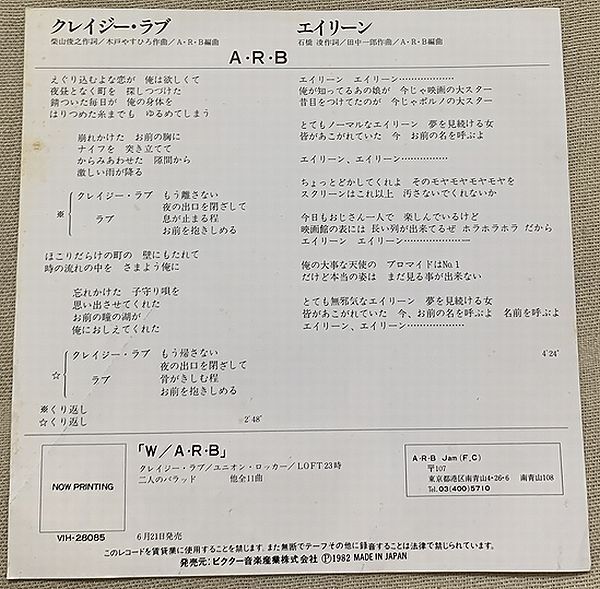 クレイジー・ラブ
柴山俊之作詞/木戸やすひろ作曲/A・R・B編曲
エイリーン
石橋 凌作詞/田中一郎作曲/A・R・B編曲
A・R・B
えぐり込むよな恋が 俺は欲しくて
夜昼となく町を 探しつづけた
錆ついた毎日が 俺の身体を
はりつめた糸までも ゆるめてしまう
崩れかけた お前の胸に
ナイフを 突き立てて
からみあわせた 隙間から
激しい雨が降る
※ クレイジー・ラブ もう離さない
夜の出口を閉ざして
ラブ 息が止まる程
お前を抱きしめる
ほこりだらけの町の 壁にもたれて
時の流れの中を さまよう俺に
忘れかけた 子守り唄を
思い出させてくれた
お前の瞳の湖が
俺におしえてくれた
☆ クレイジー・ラブ もう帰さない
夜の出口を閉ざして
ラブ 骨がきしむ程
お前を抱きしめる
※くり返し
☆くり返し
2'48"
エイリーン エイリーン………………
俺が知ってるあの娘が 今じゃ映画の大スター
昔目をつけてたのが 今じゃポルノの大スター
とてもノーマルなエイリーン 夢を見続ける女
皆があこがれていた 今 お前の名を呼ぶよ
エイリーン、エイリーン……………
ちょっとどかしてくれよ そのモヤモヤモヤモヤを
スクリーンはこれ以上 汚さないでくれないか
今日もおじさん一人で 楽しんでいるけど
映画館の表には 長い列が出来てるぜ ホラホラホラ だから
エイリーン エイリーン…………………
俺の大事な天使の ブロマイドはNo.1
だけど本当の姿は まだ見る事が出来ない
とても無邪気なエイリーン 夢を見続ける女
皆があこがれていた 今、お前の名を呼ぶよ 名前を呼ぶよ
エイリーン、エイリーン………………
4'24"
NOW PRINTING
VIH-28085
「W/A・R・B」
クレイジー・ラブ/ユニオン・ロッカー/LOFT23時
二人のバラッド 他全11曲
6月21日発売
A・R・B Jam (F,C)
〒107
東京都港区南青山4-26-6 南青山108
Tel. 03(400)5710
このレコードを賃貸業に使用することを禁じます。また無断でテープその他に録音することは法律で禁じられています。
発売元:ビクター音楽産業株式会社 Ⓟ1982 MADE IN JAPAN